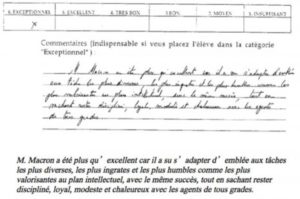 6. EXCEPTIONNEL 5. EXCELLENT 4. TRES BON 3. BON 2. MOYEN 1. INSUFFISANT
X
Commentaires (indispensable si vous placez l'élève dans la catégorie
"Exceptionnel")
M. Macron a été plus qu'excellent car il a su s'adapter d'emblée
aux tâches les plus diverses, les plus ingrates et les plus humbles comme les
plus valorisantes au plan intellectuel, avec le même succès, tout en
sachant rester discipliné, loyal, modeste et chaleureux avec les agents
de tous grades.
M. Macron a été plus qu' excellent car il a su s' adapter d' emblée aux tâches
les plus diverses, les plus ingrates et les plus humbles comme les plus
valorisantes au plan intellectuel, avec le même succès, tout en sachant rester
discipliné, loyal, modeste et chaleureux avec les agents de tous grades.